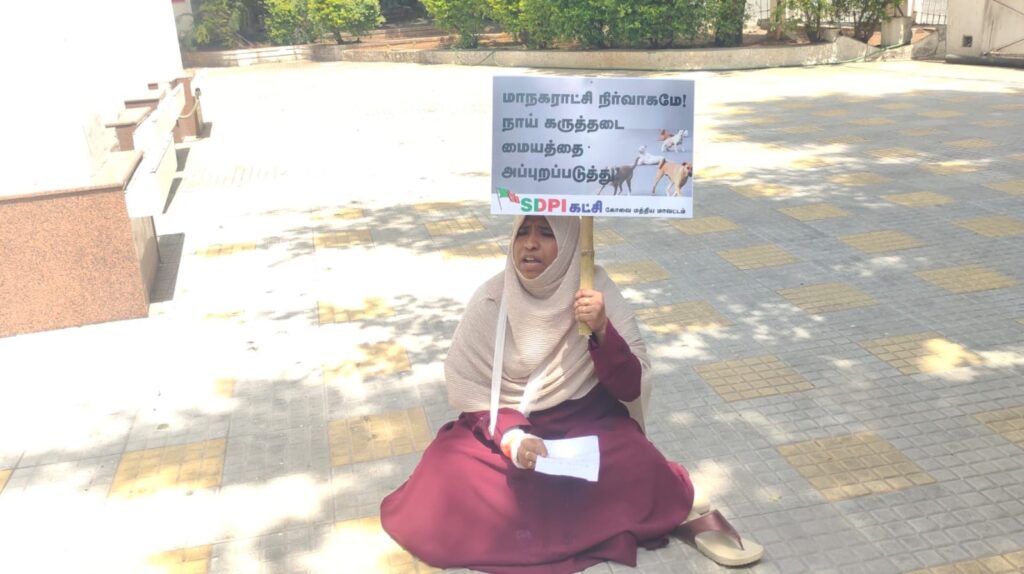 மாநகராட்சி நிர்வாகமே!
நாய் கருத்தடை
மையத்தை
அப்புறப்படுத்து
SDPI கட்சி கோவை மத்திய மாவட்டம்